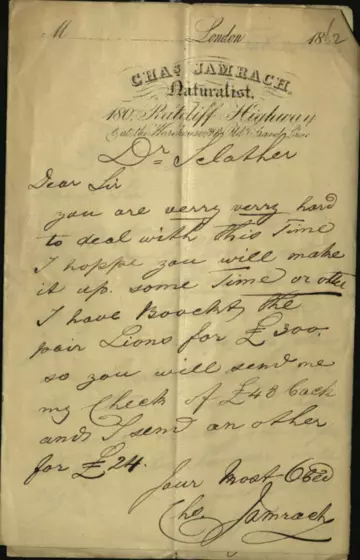 M London 1862
CHAS JAMRACH,
Naturalist,
180, Ratcliff Highway
Dr. Sclather
Dear Sir
you are verry verry hard
to deal with this Time
I hoppe you will make
it up some Time or other
I have Boocht the
pair Lions for £300.
so you will send me
my Check of £48 back
and I send an other
for £24.
Your Most Obed
Chs Jamrach